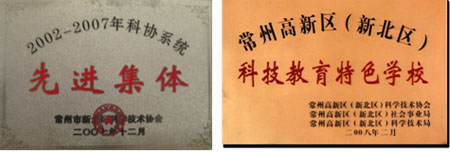 2002-2007年科协系统
先进集体
常州市新北区科学技术协会
二〇〇七年十二月
常州高新区（新北区）
科技教育特色学校
常州高新区（新北区）科学技术协会
常州高新区（新北区）社会事业局
常州高新区（新北区）科学技术局
二〇〇八年二月